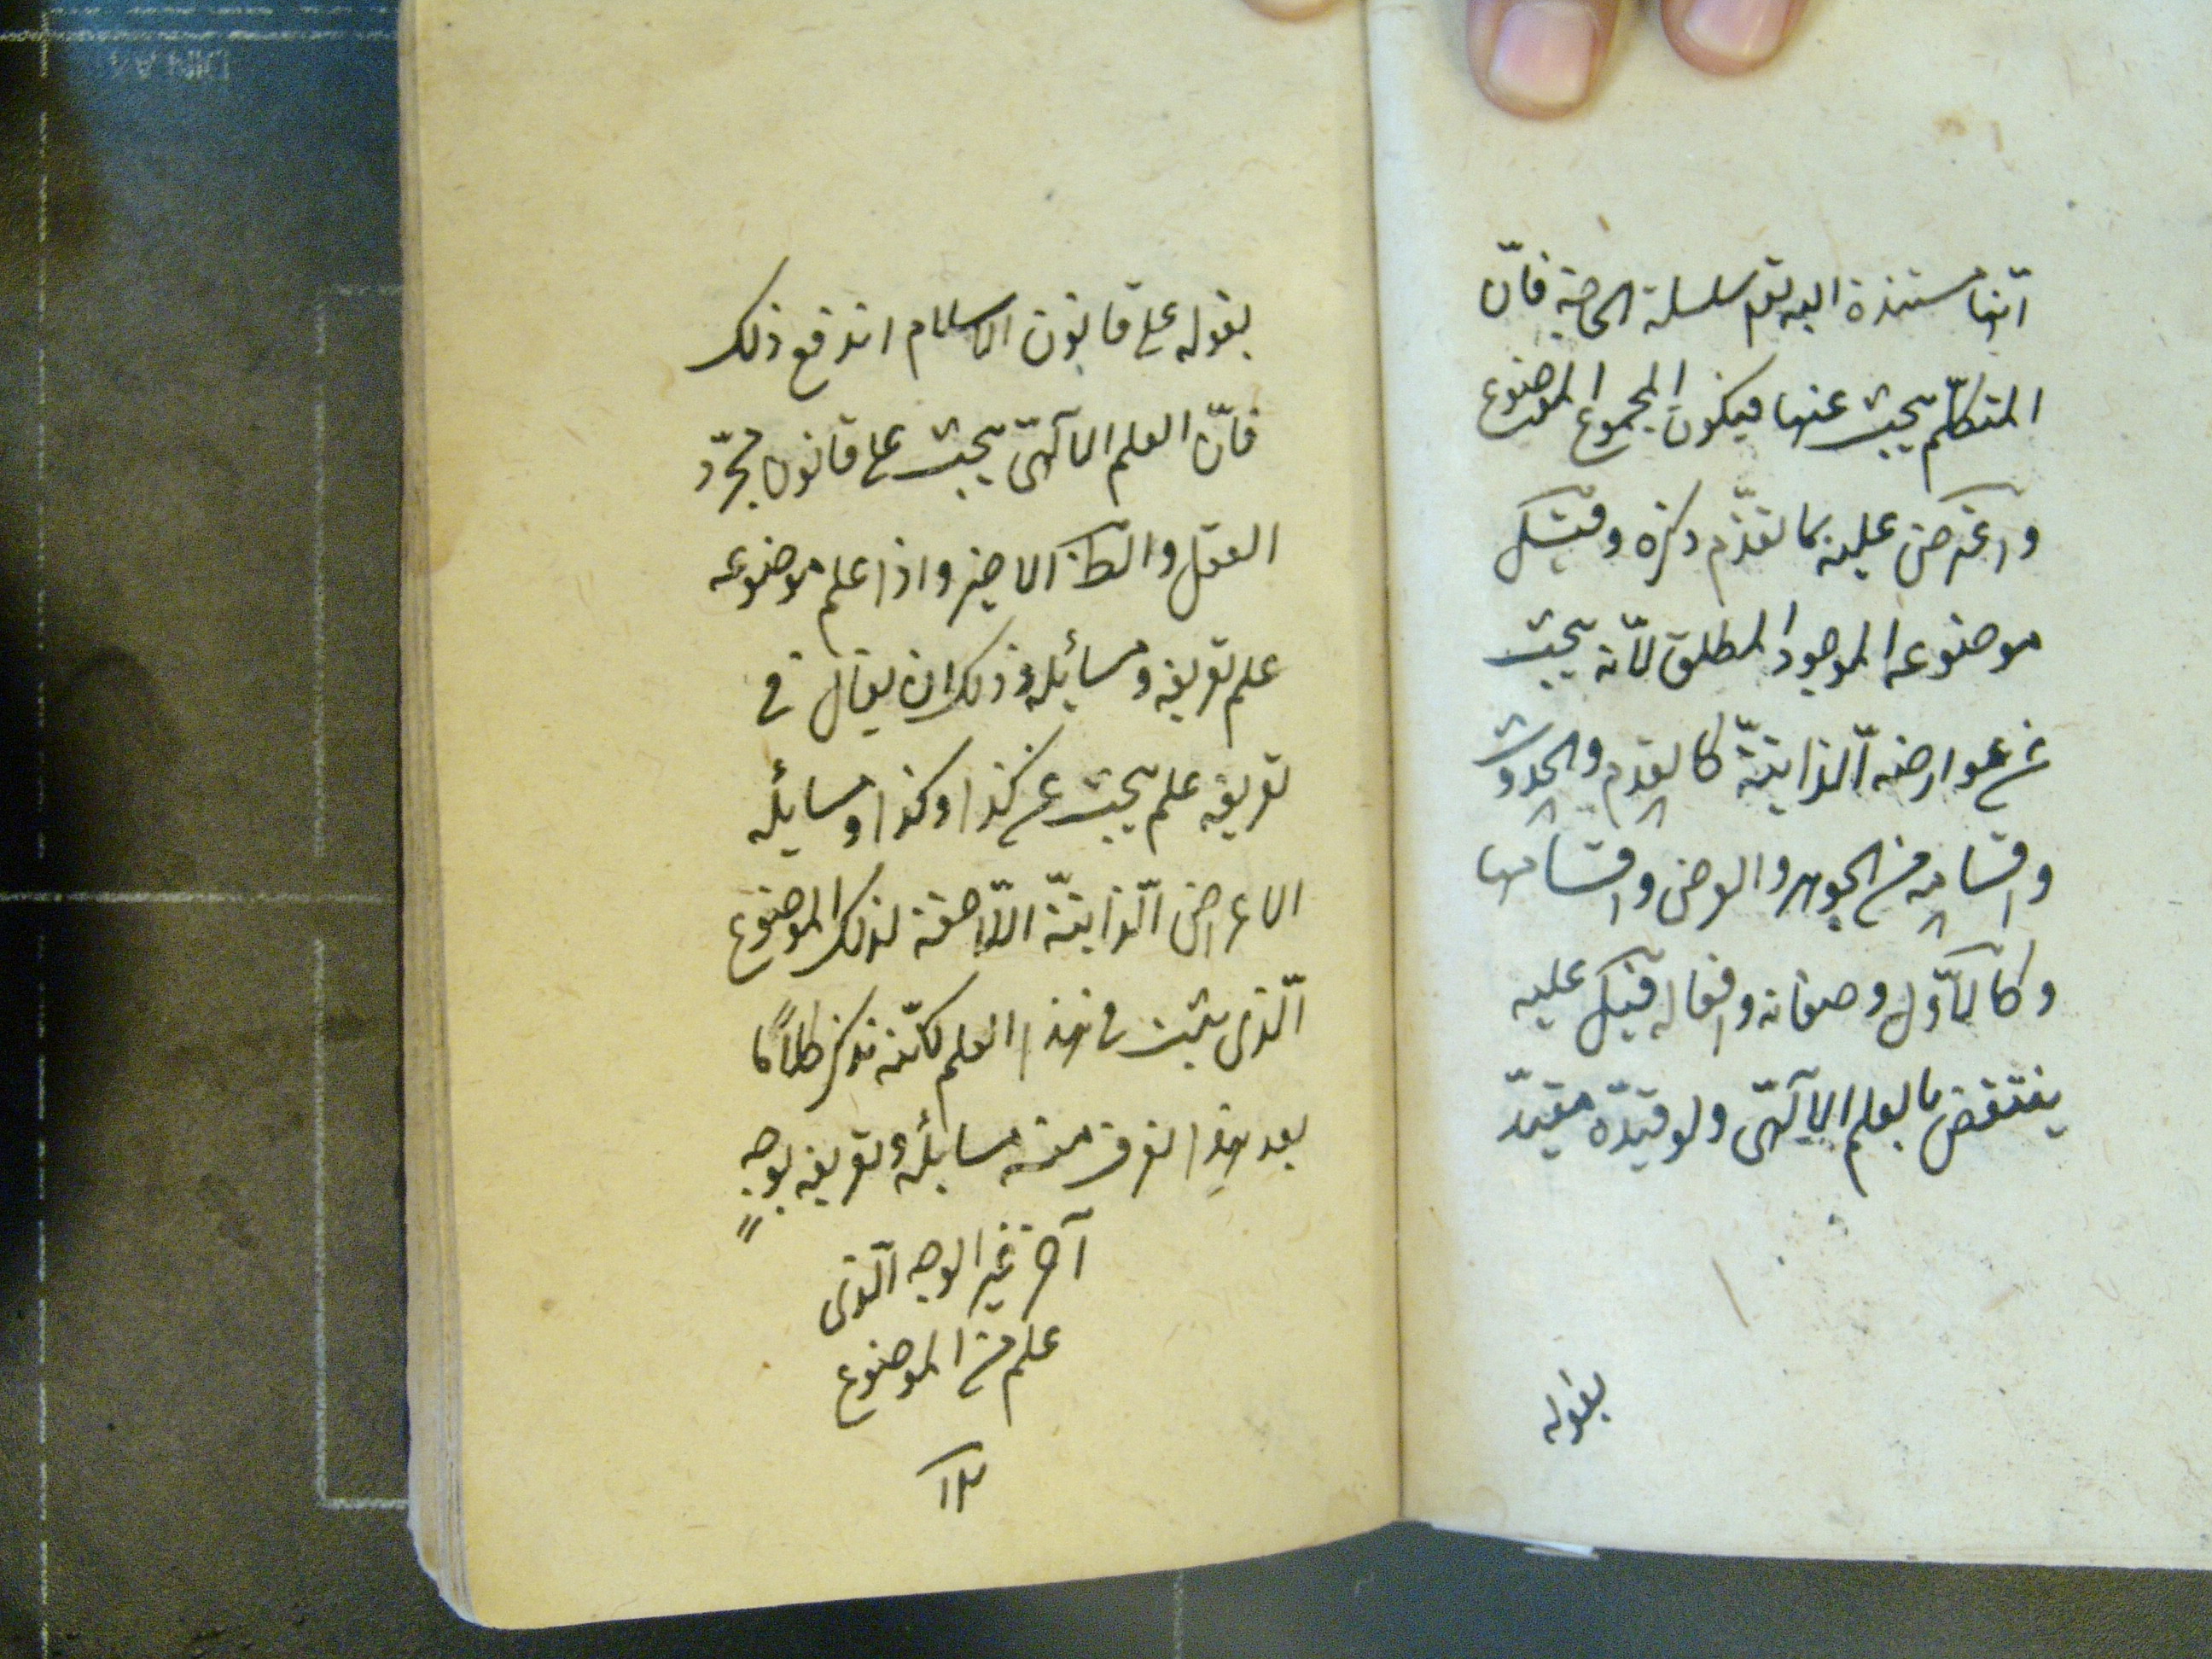 انها مستندة اليه تعم سلسلة الحاجة فانّ
المتكلّم يبحث عنها فيكون المجموع الموضوع
واعترض عليه بما تقدّم ذكره وقيل
موضوعه الموجود المطلق لأنّه يبحث
عن عوارضه الذّاتيّة كالقدم والحدوث
واقسامه من الجوهر والعرض واقسامها
وكالأوّل وصفاته وافعاله قيل عليه
ينتقض بالعلم الآلهىّ ولو قيّده مقيّد
بقوله
بقوله على قانون الاسلام اندفع ذلك
فانّ العلم الآلهىّ يبحث على قانون مجرّد
العقل والنظر الاخير واذا علم موضوعه
علم تعريفه ومسائله وذلك ان يقال فى
تعريفه علم يبحث عن كذا وكذا ومسائله
الاعراض الذّاتيّة اللّاحقة لذلك الموضوع
الّذى يثبت فى هذا العلم لكنّه نذكر كلاما
بعد هذا نعرف منه مسائله وتعريفه بوجه
آخر غير الوجه الّذى
علم من الموضوع